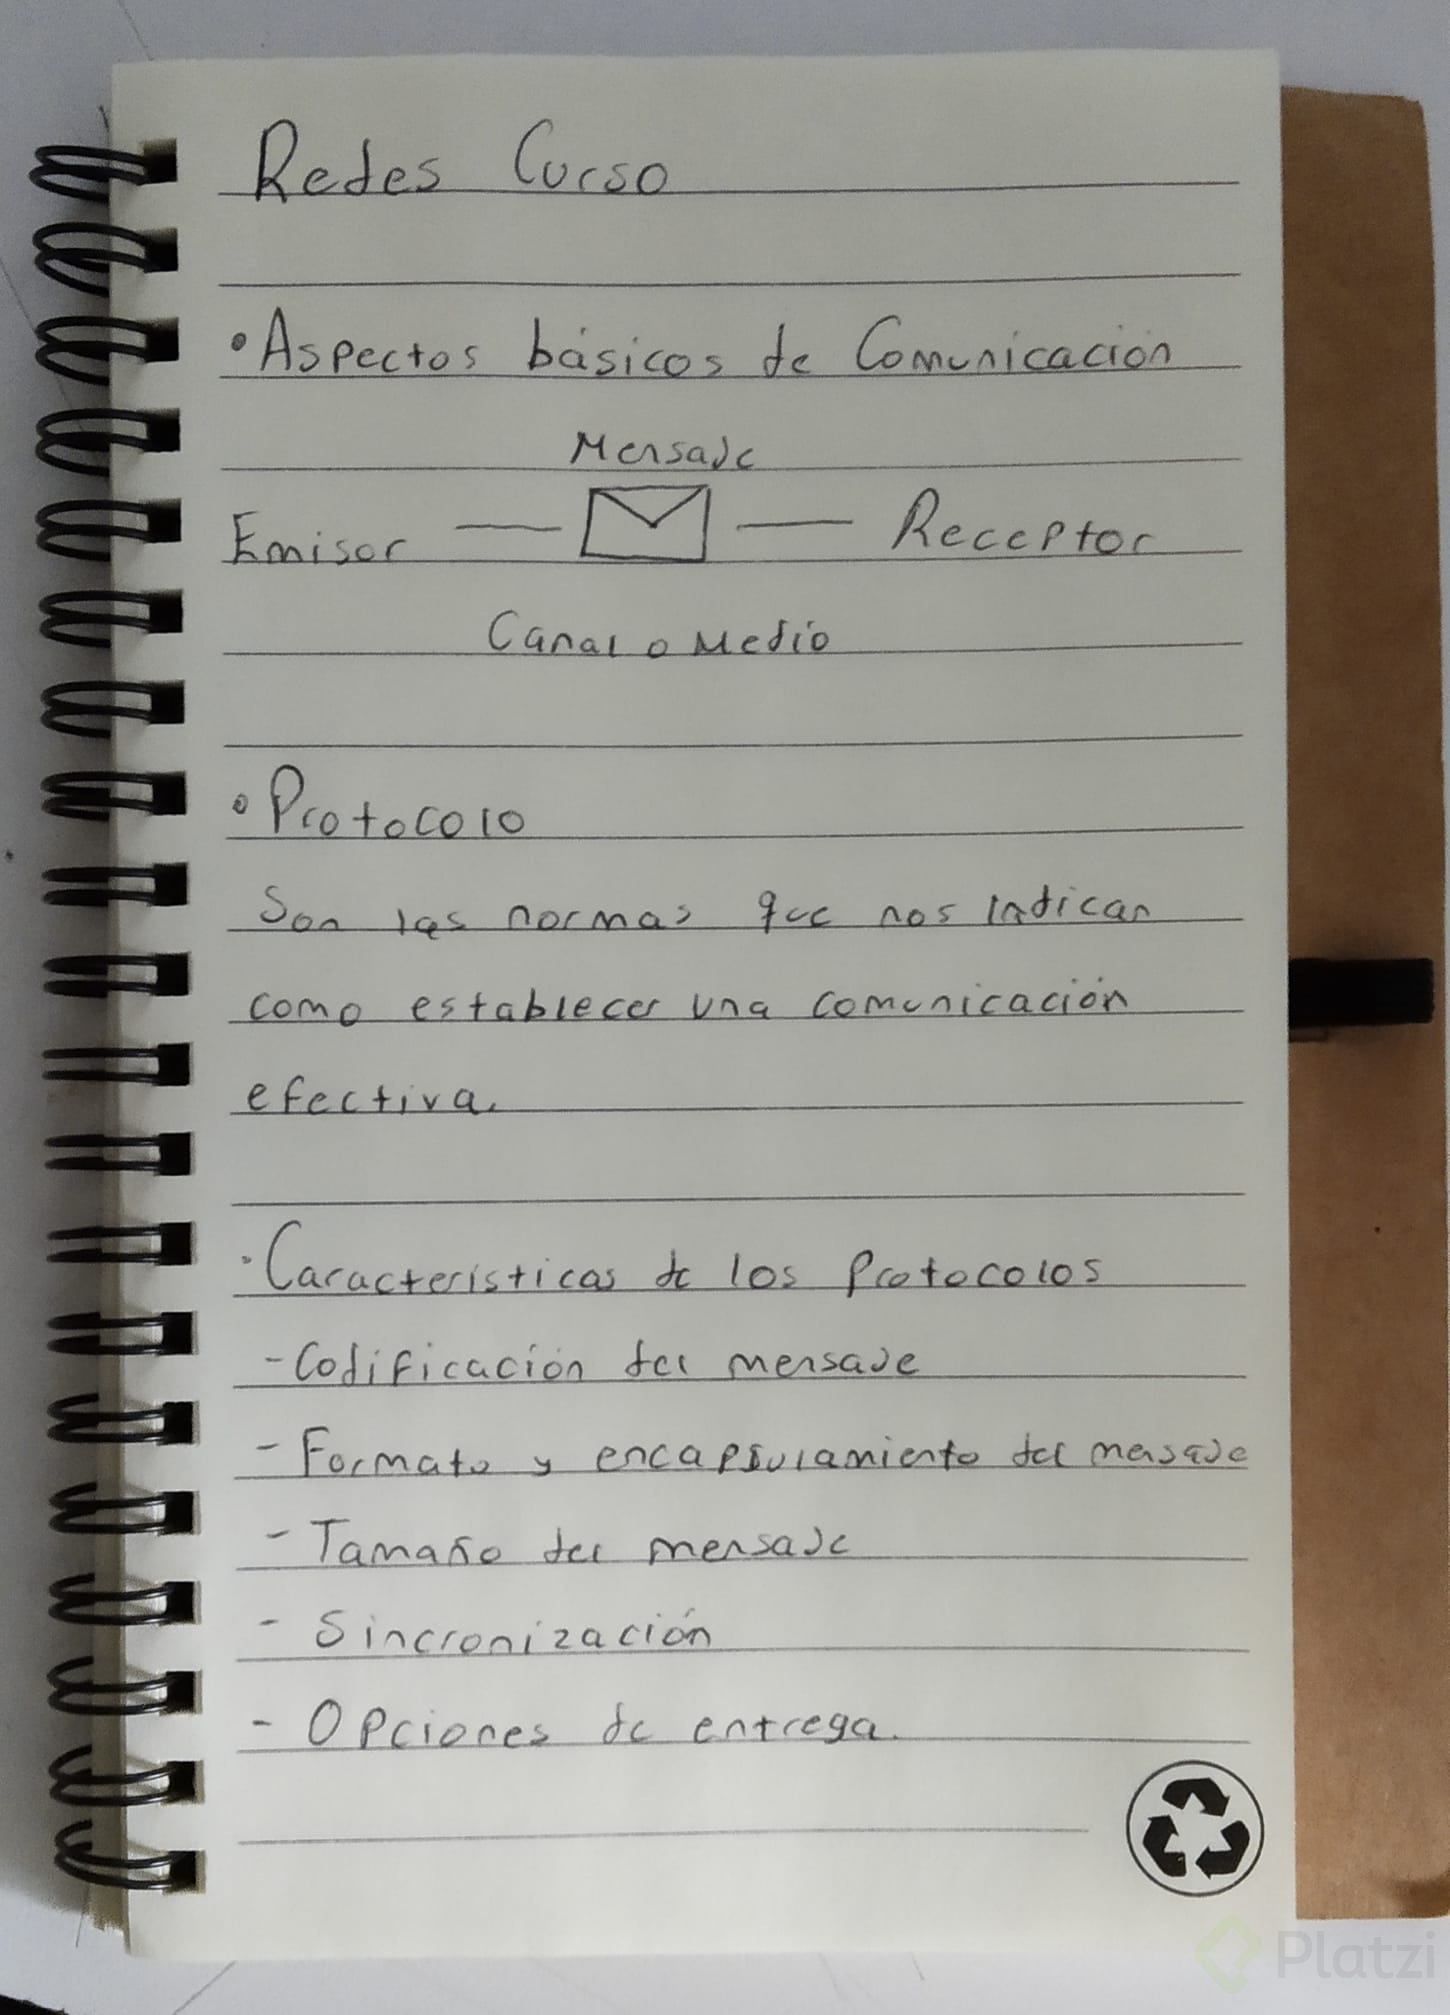 Redes Curso
• Aspectos básicos de Comunicación
Mensaje
Emisor — — Receptor
Canal o Medio
• Protocolo
Son las normas que nos indican
como establecer una comunicación
efectiva.
• Características de los Protocolos
- Codificación del mensaje
- Formato y encapsulamiento del mensaje
- Tamaño del mensaje
- Sincronización
- Opciones de entrega.
Platzi